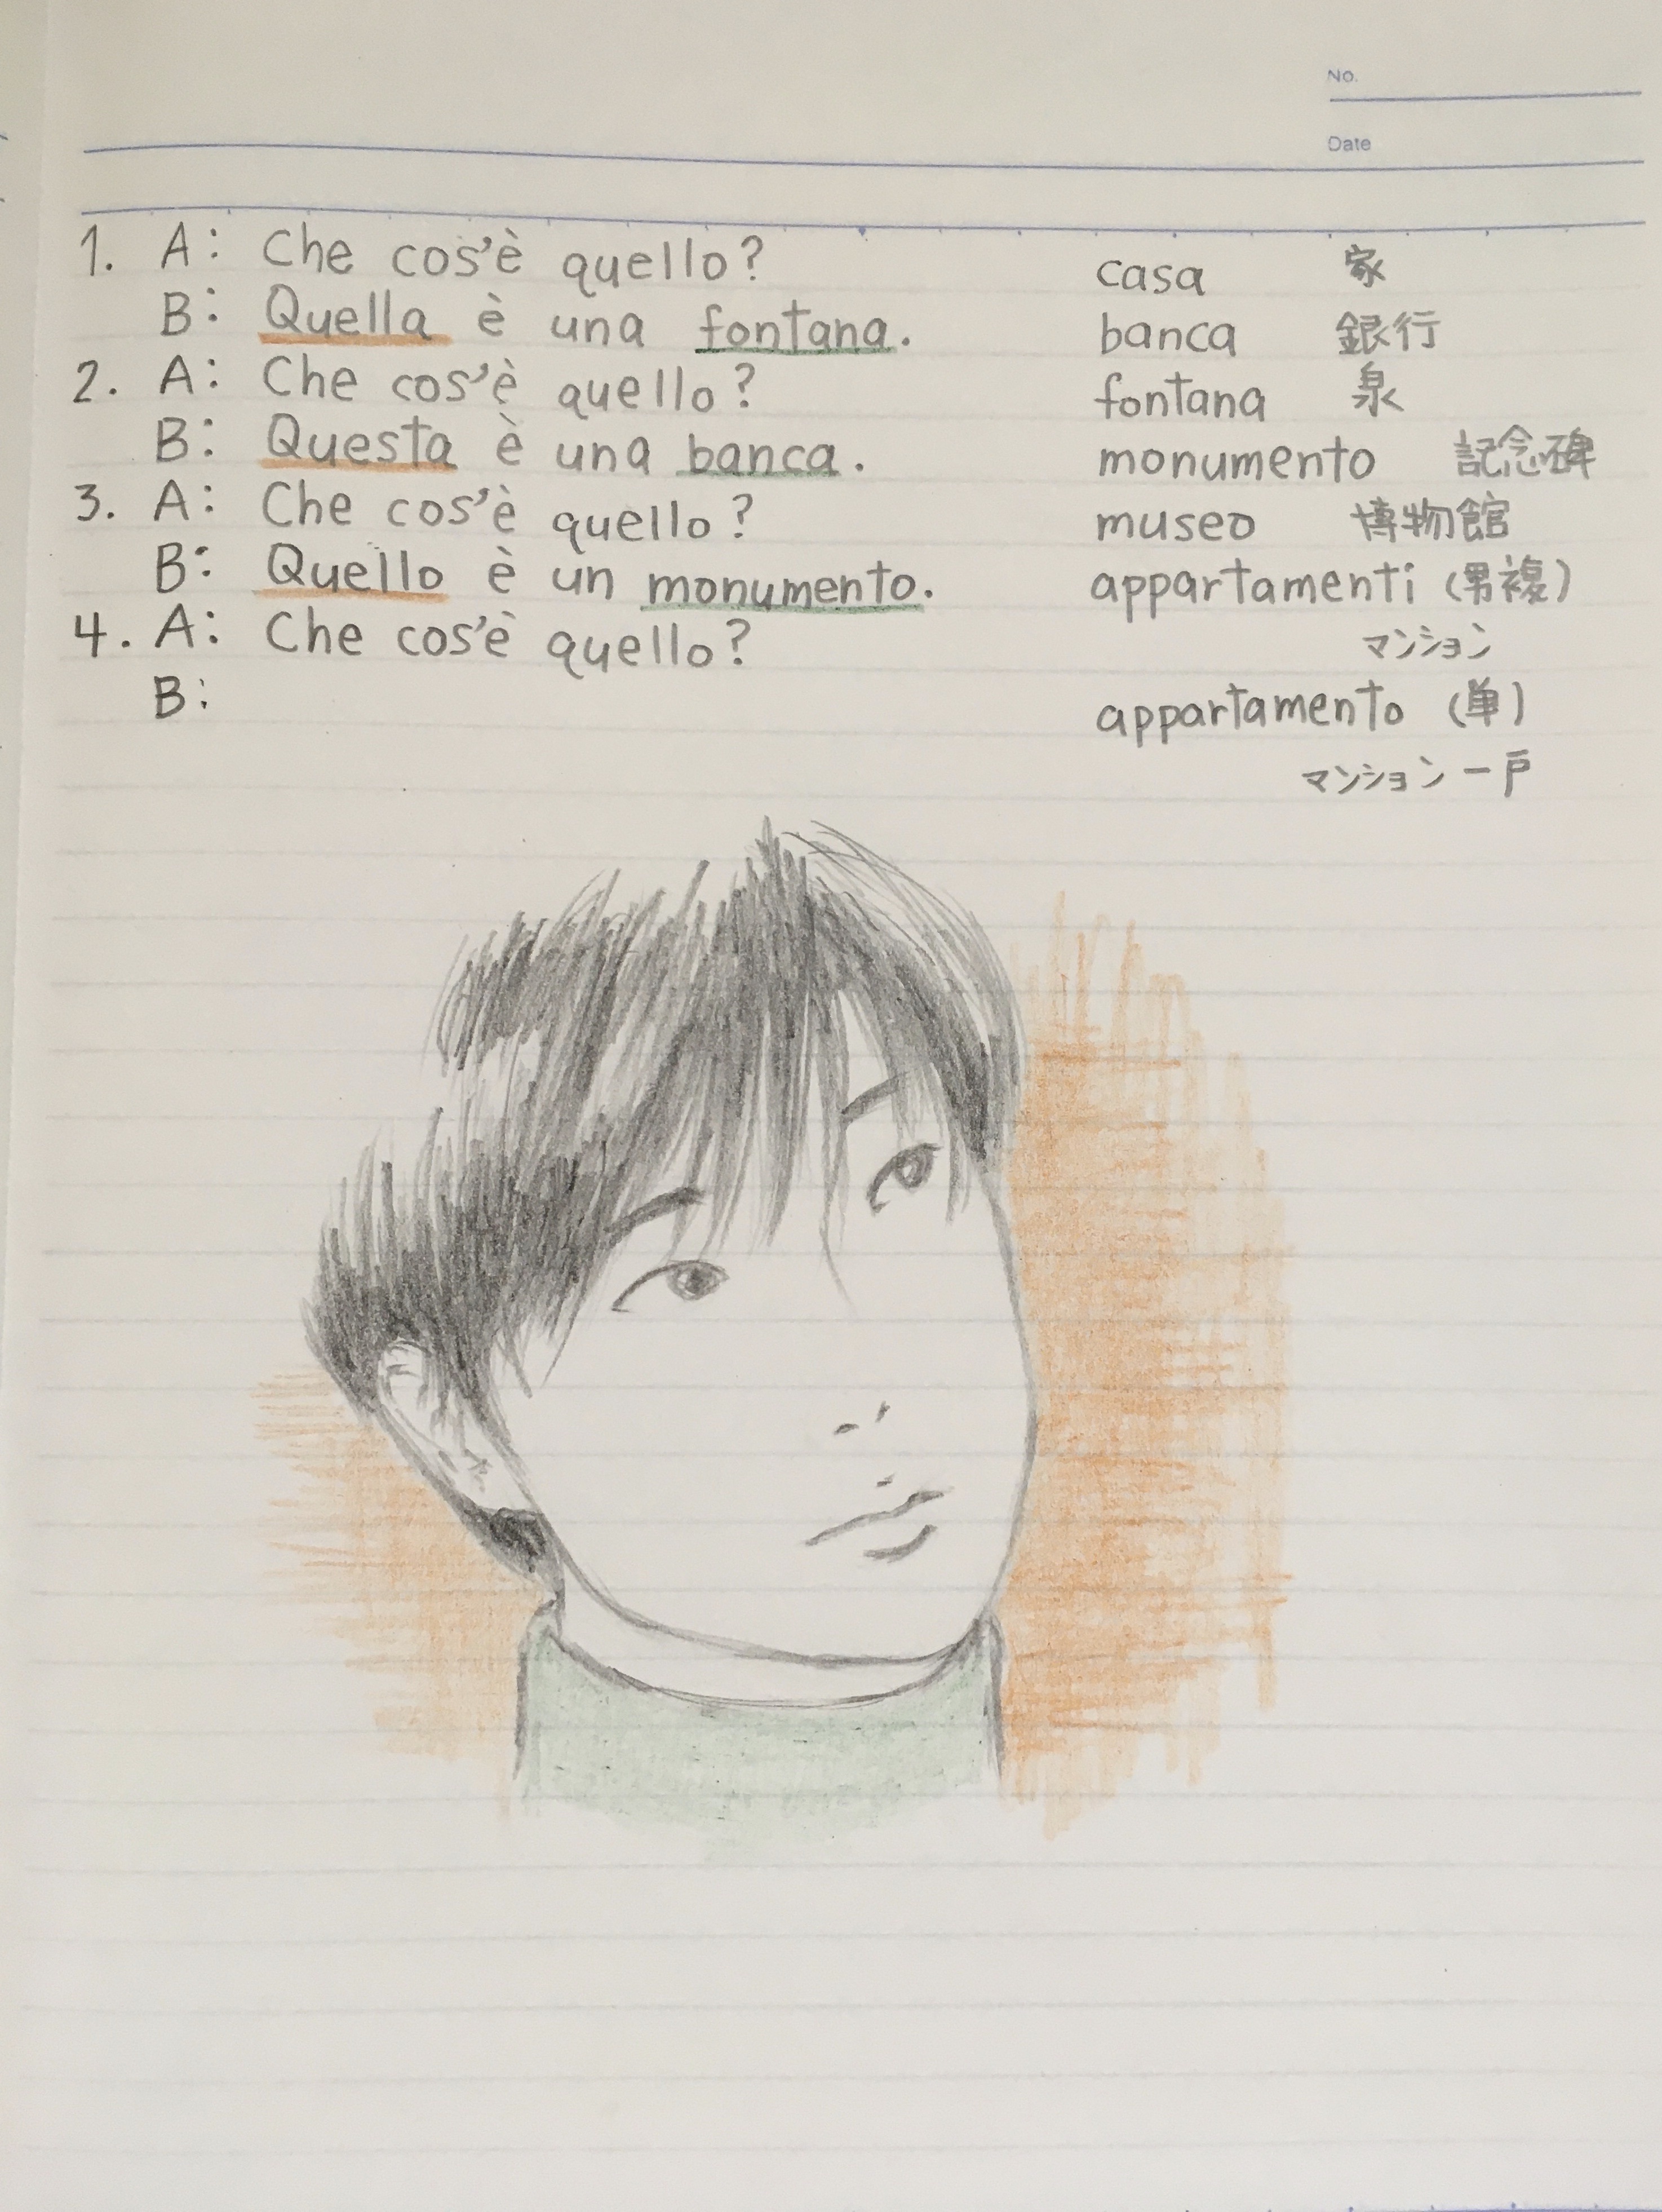 No.
Date
1. A: Che cos'è quello?
B: Quella è una fontana.
2. A: Che cos'è quello?
B: Questa è una banca.
3. A: Che cos'è quello?
B: Quello è un monumento.
4. A: Che cos'è quello?
B:
casa 家
banca 銀行
fontana 泉
monumento 記念碑
museo 博物館
appartamenti (男複)
マンション
appartamento (単)
マンション一戸